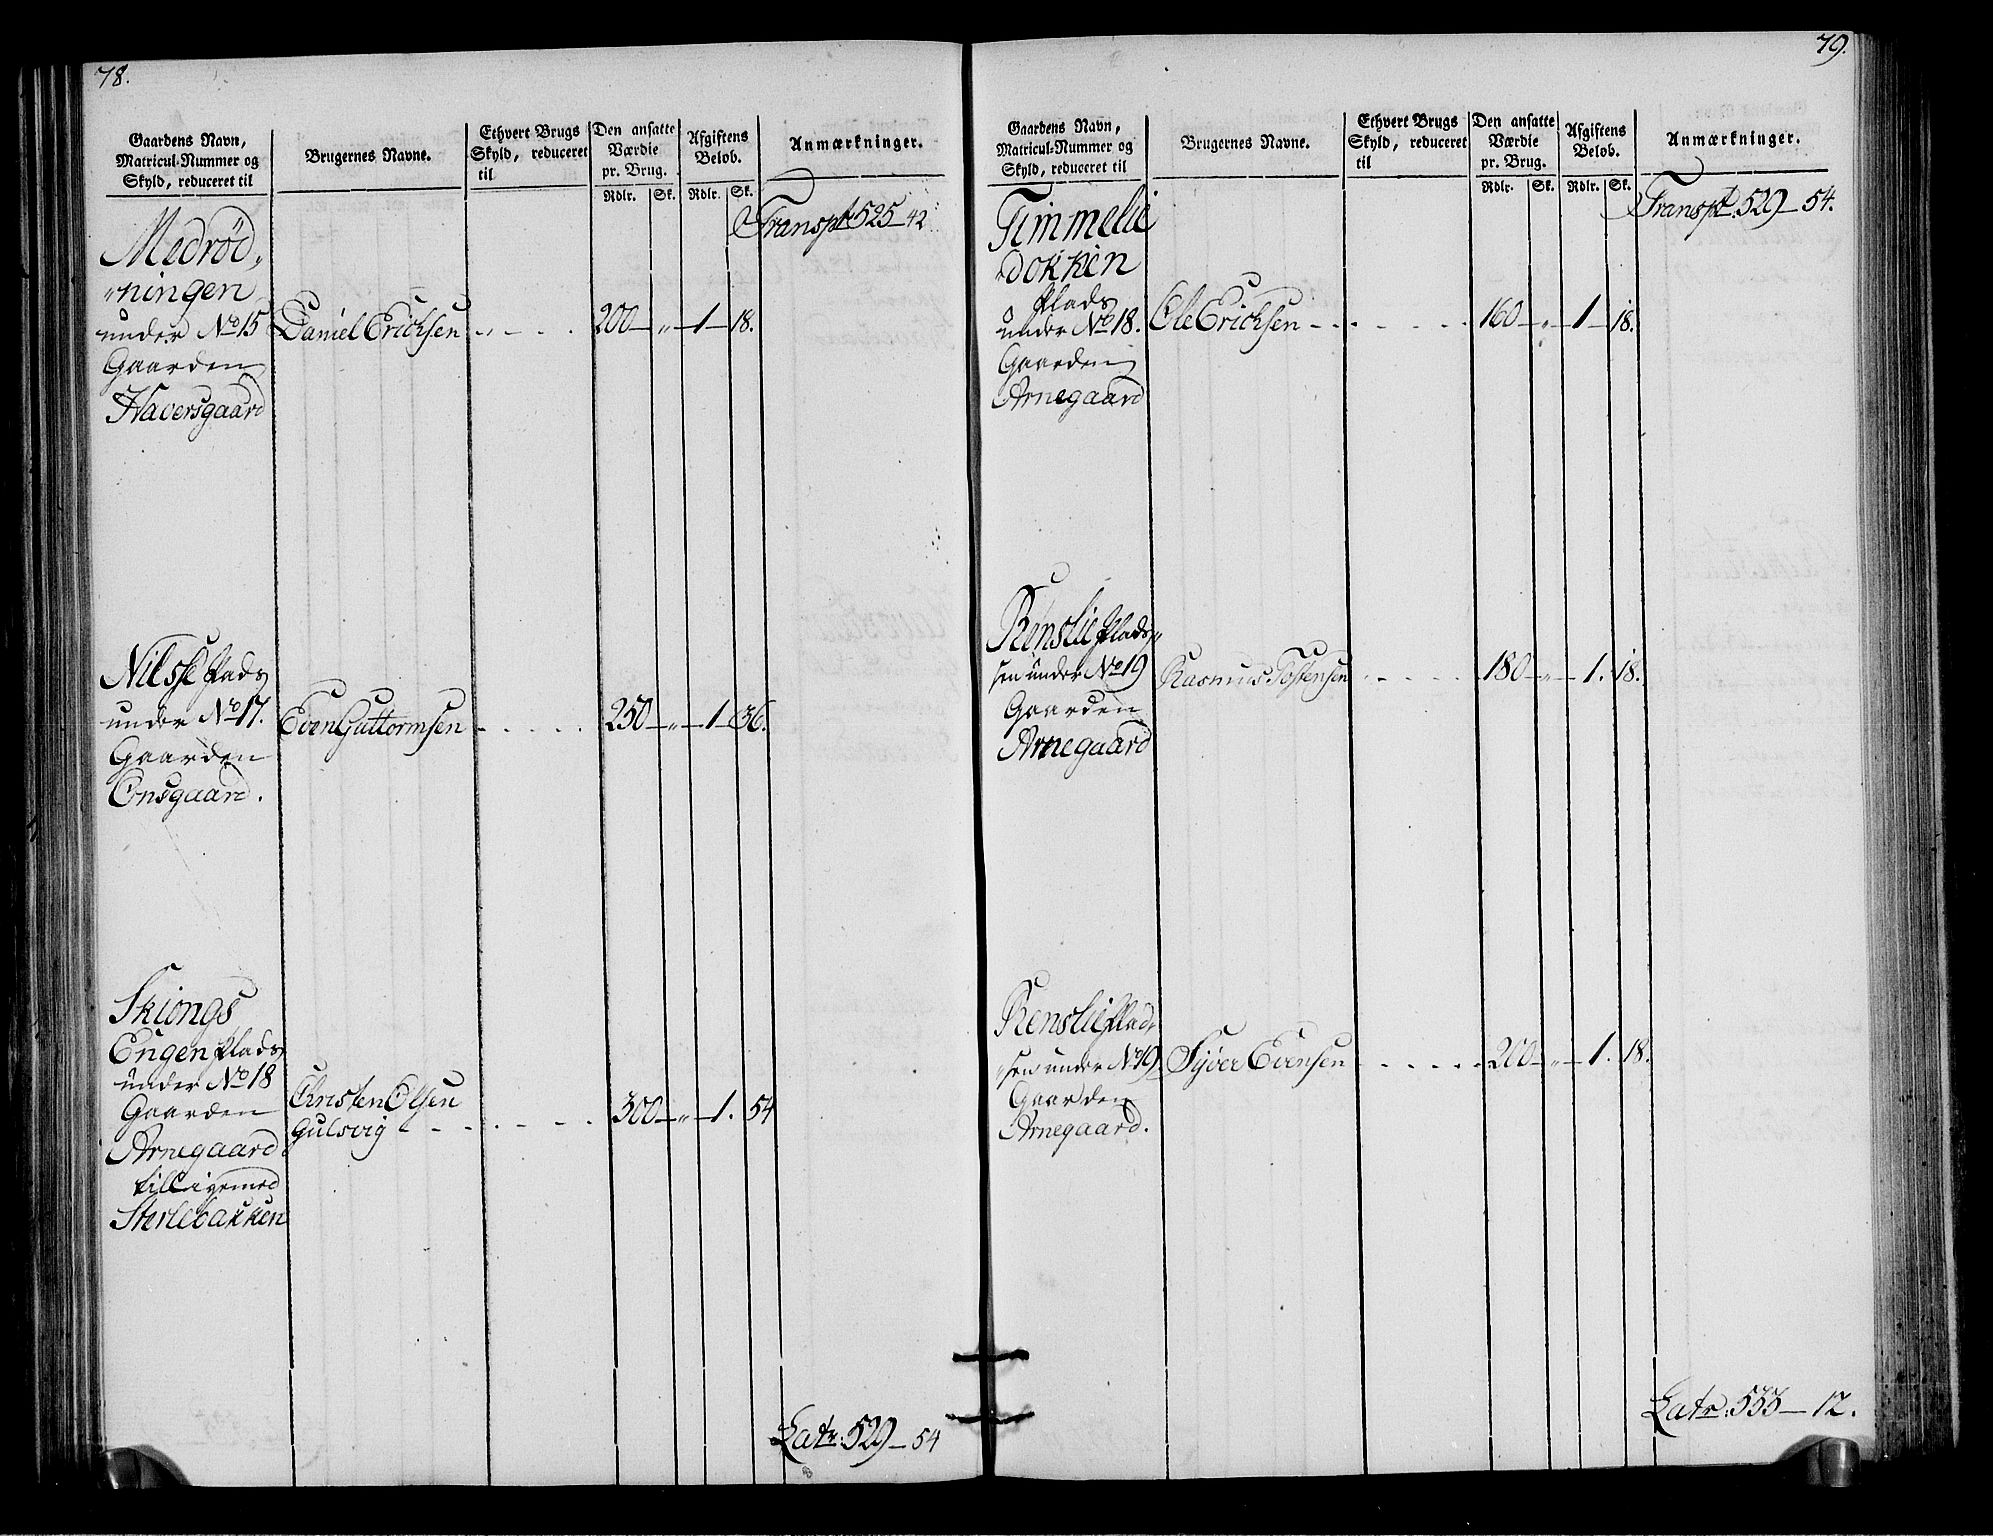 78.
Gaardens Navn,
Matricul-Nummer og
Skyld, reduceret til
Brugernes Navne.
Ethvert Brugs
Skyld, reduceret
til
Den ansatte
Værdie
pr. Brug.
Rdlr. Sk.
Afgiftens
Beløb.
Rdlr. Sk.
Anmærkninger.
Transpt 525-42
Medrød„
„ningen
under No 15 Daniel Erichsen 200 „ 1 18.
Gaarden
Haversgaard
Nilse Plads
under No 17. Even Guttormsen 250 „ 1 36.
Gaarden
Onsgaard.
Skiongs
Engen Plads
under No 18
Gaarden Christen Olsen
Gulsvig 300 „ 1. 54
Arnegaard
tilligemed
Sterlebakken
Latr: 529-54
79.
Gaardens Navn,
Matricul-Nummer og
Skyld, reduceret til
Brugernes Navne.
Ethvert Brugs
Skyld, reduceret
til
Den ansatte
Værdie
pr. Brug.
Rdlr. Sk.
Afgiftens
Beløb.
Rdlr. Sk.
Anmærkninger.
Transpt. 529-54.
Timmelie
dokken
Plads
under No 18. Ole Erichsen 160 „ 1 18.
Gaarden
Arnegaard
Renslie Plads„
sen under No 19 Rasmus Tostensen 180 „ 1. 18.
Gaarden
Arnegaard
Renslie Plad„
„sen under No 19 Syver Evensen 200 „ 1. 18.
Gaarden
Arnegaard.
Latr: 533-12.